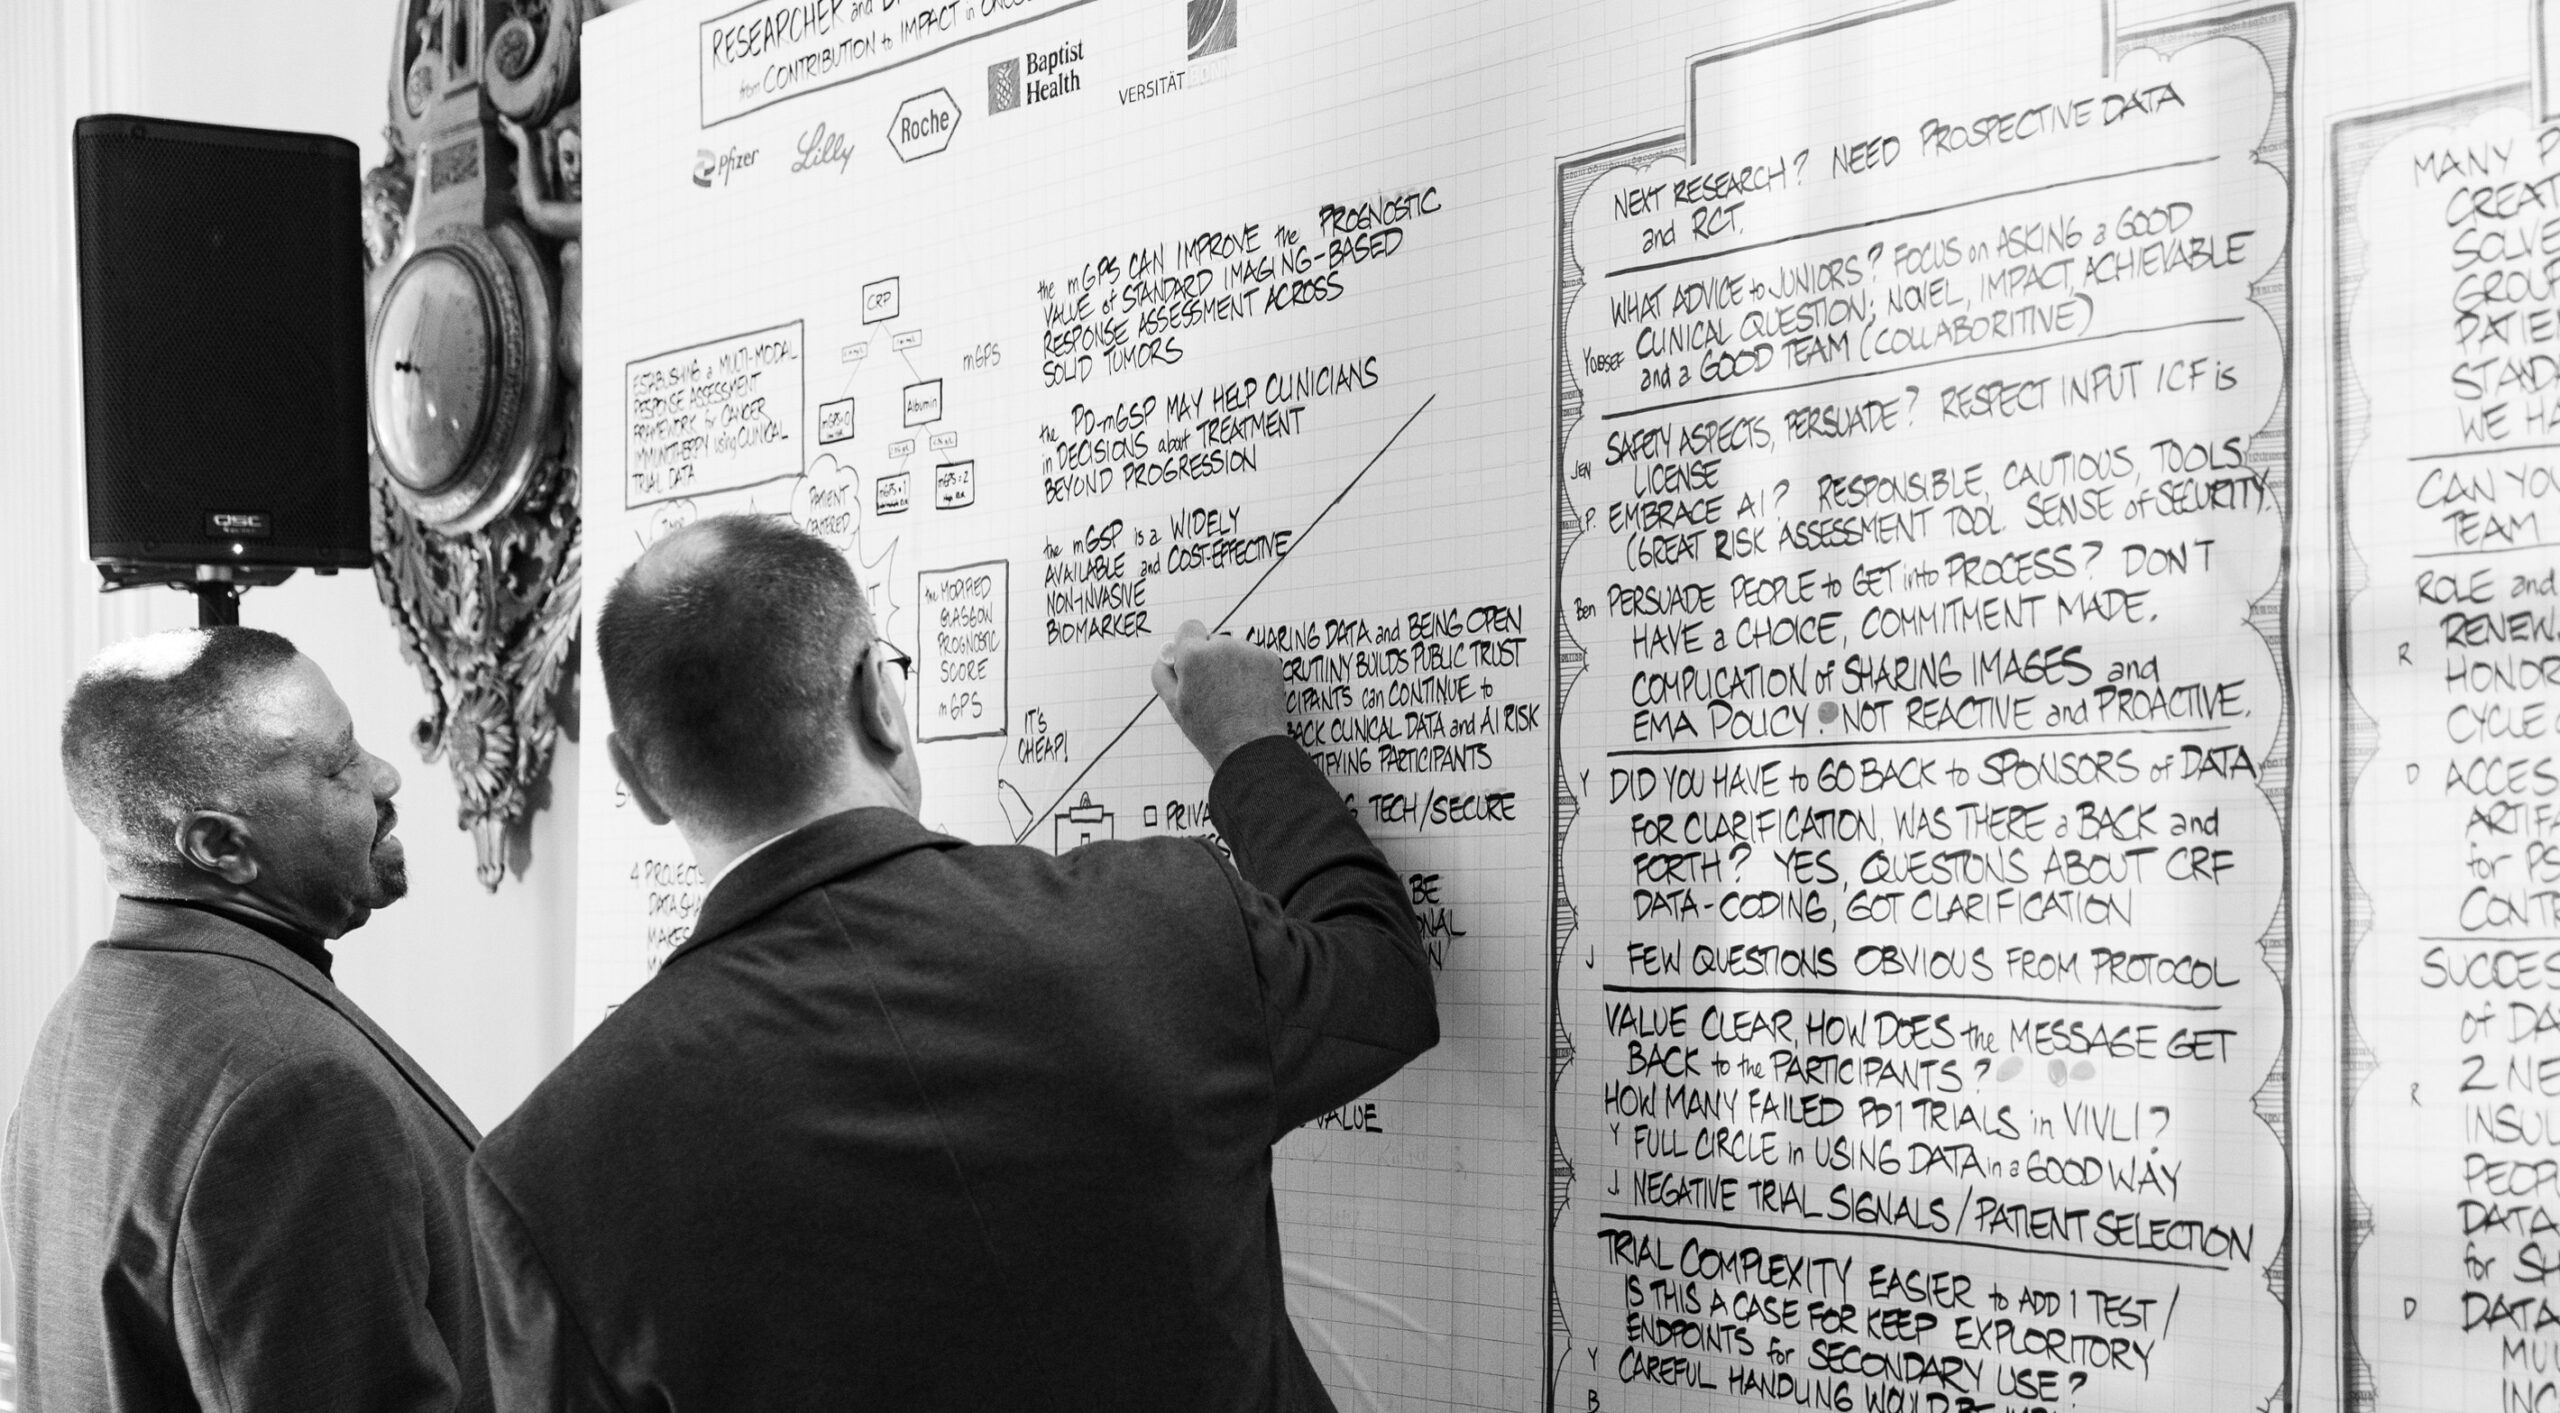 RESEARCHER and
from CONTRIBUTION to IMPACT in
Pfizer
Lilly
Roche
Baptist
Health
VERSITÄT
CRP
mGPS
mGPS=0
Albumin
mGPS=1
mGPS=2
ESTABLISHING a MULTI-MODAL
RESPONSE ASSESSMENT
FRAMEWORK for CANCER
using CLINICAL
TRIAL DATA
PATIENT
CENTERED
the MODIFIED
GLASGOW
PROGNOSTIC
SCORE
mGPS
IT'S
CHEAP!
4 PROJECTS
DATA SHA
MAKES
QSC
the mGPS CAN IMPROVE the PROGNOSTIC
VALUE of STANDARD IMAGING-BASED
RESPONSE ASSESSMENT ACROSS
SOLID TUMORS
the PD-mGSP MAY HELP CLINICIANS
in DECISIONS about TREATMENT
BEYOND PROGRESSION
the mGSP is a WIDELY
AVAILABLE and COST-EFFECTIVE
NON-INVASIVE
BIOMARKER
SHARING DATA and BEING OPEN
CRUTINY BUILDS PUBLIC TRUST
CIPANTS can CONTINUE to
BACK CLINICAL DATA and AI RISK
TIFYING PARTICIPANTS
PRIVA G TECH/SECURE
BE
NAL
N
VALUE
NEXT RESEARCH? NEED PROSPECTIVE DATA
and RCT.
WHAT ADVICE to JUNIORS? FOCUS on ASKING a GOOD
Youssef CLINICAL QUESTION; NOVEL, IMPACT, ACHIEVABLE
and a GOOD TEAM (COLLABORITIVE)
SAFETY ASPECTS, PERSUADE? RESPECT INPUT ICF is
JEN LICENSE
P. EMBRACE AI? RESPONSIBLE, CAUTIOUS, TOOLS,
(GREAT RISK ASSESSMENT TOOL. SENSE of SECURITY.
Ben PERSUADE PEOPLE to GET into PROCESS? DON'T
HAVE a CHOICE, COMMITMENT MADE.
COMPLICATION of SHARING IMAGES and
EMA POLICY. NOT REACTIVE and PROACTIVE.
Y DID YOU HAVE to GO BACK to SPONSORS of DATA
FOR CLARIFICATION, WAS THERE a BACK and
FORTH? YES, QUESTIONS ABOUT CRF
DATA-CODING, GOT CLARIFICATION
J FEW QUESTIONS OBVIOUS FROM PROTOCOL
VALUE CLEAR, HOW DOES the MESSAGE GET
BACK to the PARTICIPANTS?
HOW MANY FAILED PD1 TRIALS in VIVLI?
Y FULL CIRCLE in USING DATA in a GOOD WAY
J NEGATIVE TRIAL SIGNALS/PATIENT SELECTION
TRIAL COMPLEXITY EASIER to ADD 1 TEST/
IS THIS A CASE FOR KEEP EXPLORITORY
ENDPOINTS for SECONDARY USE?
Y CAREFUL HANDLING WOULD BE
B
MANY P
CREAT
SOLVE
GROU
PATIE
STANDA
WE HA
CAN YOU
TEAM
ROLE and
RENEW
R HONOR
CYCLE
D ACCES
ARTIFA
for PS
CONTR
SUCCES
of DA
2 NE
R INSUL
PEOPL
DATA
for SH
D DATA
MUL
INC